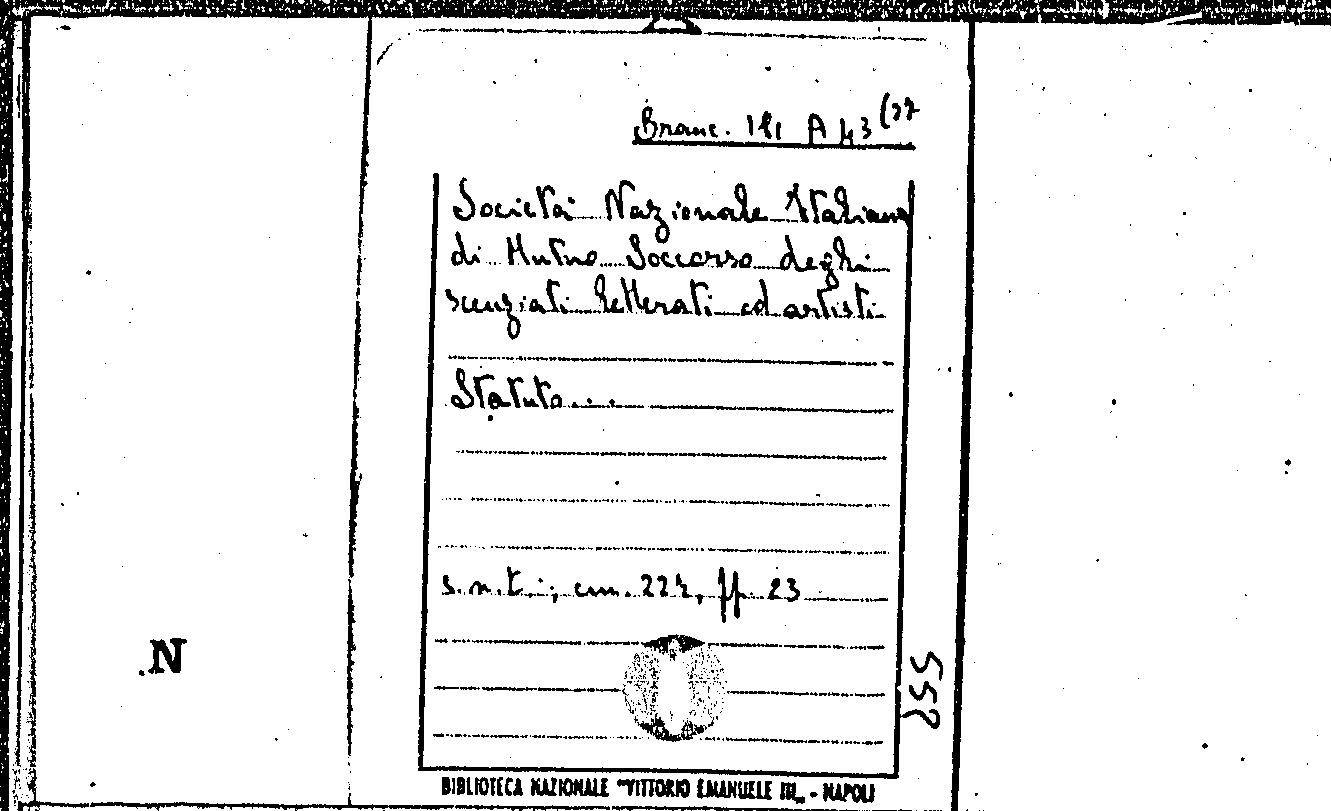 Branc. 181 A 43 (27
Società Nazionale Italiana
di Mutuo Soccorso degli
scenziati letterati ed artisti
Statuto...
s.n.t.; cm. 22½, ff. 23
N.
552
BIBLIOTECA NAZIONALE "VITTORIO EMANUELE III„ - NAPOLI